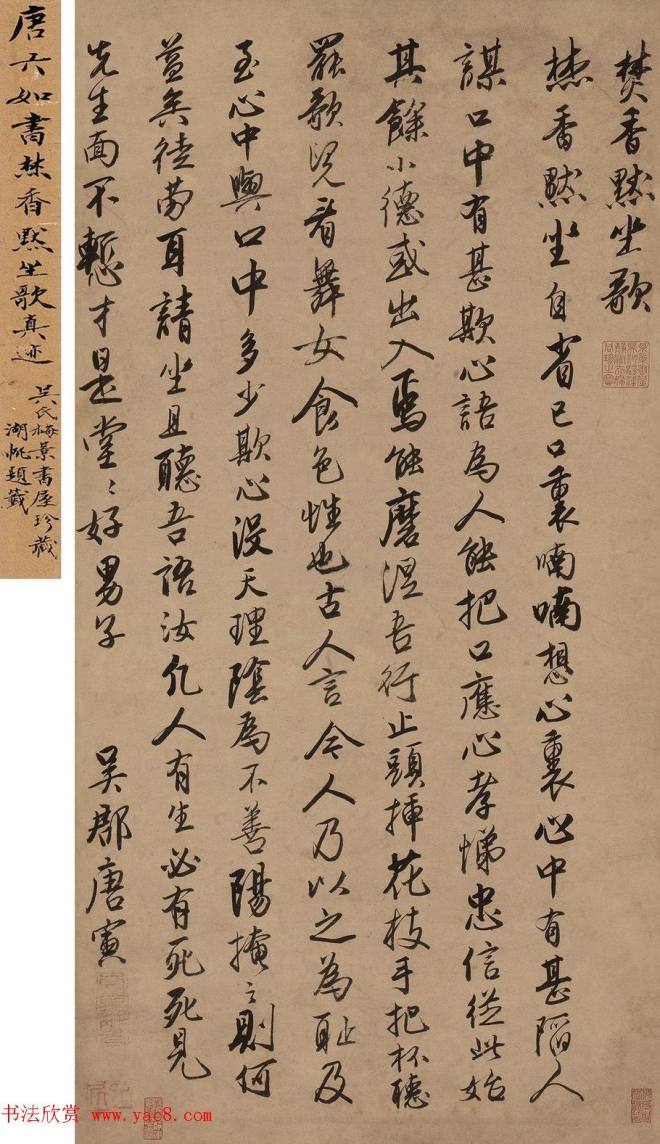 焚香黙坐歌
焚香黙坐自省己口裏喃喃想心裏心中有甚陷人
謀口中有甚欺心語為人能把口應心孝悌忠信從此始
其餘小德或出入焉能磨涅吾行止頭插花枝手把杯聽
罷歌兒看舞女食色性也古人言今人乃以之為恥及
至心中與口中多少欺心沒天理陰為不善陽掩之則何
益矣徒勞耳請坐且聽吾語汝凡人有生必有死死見
先生面不慙才是堂〻好男子 吳郡唐寅
唐六如書焚香黙坐歌真迹
吳氏梅景書屋珍藏
湖帆題籤
书法欣赏 www.yac8.com